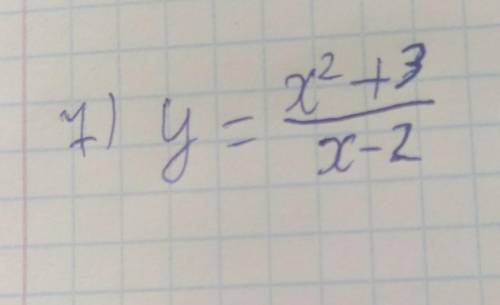 7) y = (x² + 3)/(x - 2)